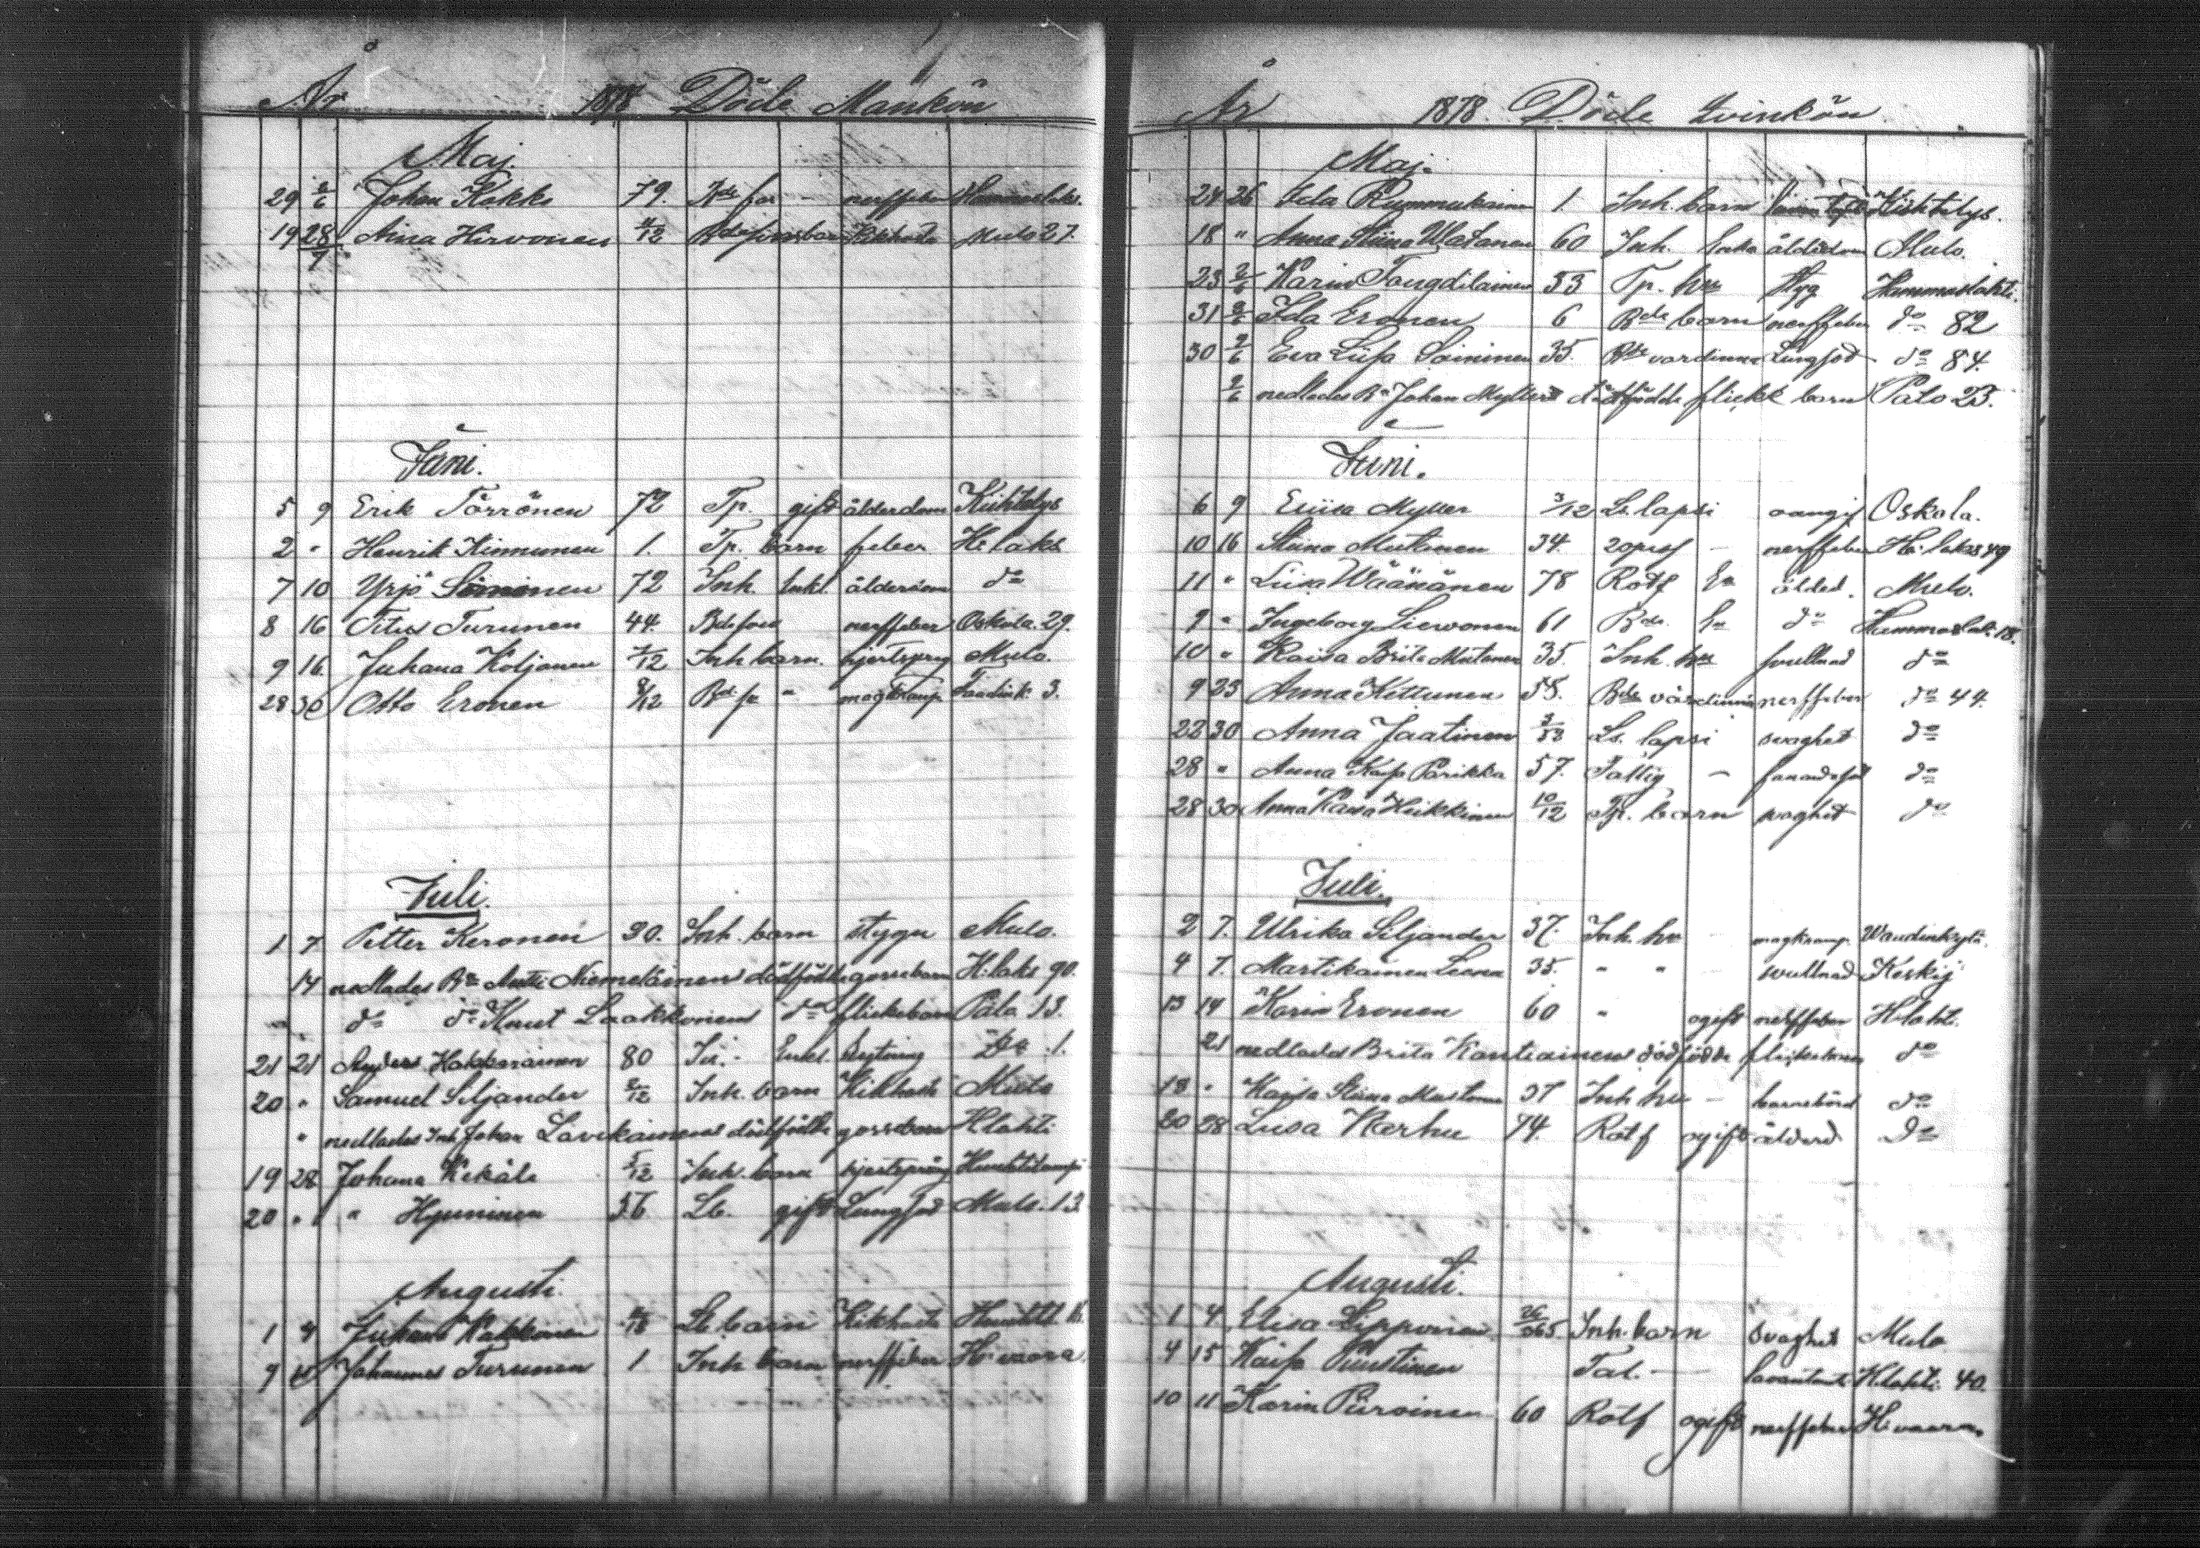 År 1878 Döde Mankön
Maj.
29 2/6 Johan Kokko 79. nerffeber
19 28/7 Aina Hirvonen 4/12 Kikhosta Mulo 27.
Juni.
5 9 Erik Törrönen 72 Tp. gift ålderdom Kiihtelys
2 " Henrik Kinnunen 1. Tp. barn feber H:laks
7 10 Yrjö Soininen 72 Inh. enkl. ålderdom do
8 16 Titus Turunen 44. nerffeber Oskola. 29.
9 16. Juhana Koljonen 7/12 Inh barn. hjertspng Mulo.
28 30 Otto Eronen 8/12 Bd. " magkramp 3.
Juli.
1 7 Petter Keronen 30. Inh. barn stygn Mulo.
14 nedlades Bn Antti Niemeläinens dödfödde gossebarn H:laks 90.
do do Knut Laakkonens do flickebarn Palo 13.
21 21 Anders Hakkarainen 80 Enkl. 1.
20 " Samuel Siljander 2/12 Inh. barn Kikhosta Mulo
" nedlades Inh Johan Lavikainens dödfödde gossebarn Hlahti
19 28 Johana Kekäle 5/12 Inh. barn hjertspräng
20 " " Hyninen 56 Ls. gift Lungsot Mulo. 13
Augusti.
1 4 Juhana Kakkonen Ls. barn Kikhosta
9 11 Johannes Turunen 1 Inh. barn nerffeber H:vaara.
År 1878. Döde Qvinkön
Maj.
24 26 Ida Rummukainen 1 Inh. barn Kiihtelys.
18 " Anna Stiina Watanen 60 Inh. Enka ålderdom Mulo.
23 2/6 Karin Tougdilainen 53 Tp. hu styg Hammaslahti.
31 2/6 Ida Eronen 6 Bde barn nerffeber do 82
30 2/6 Eva Liisa Soininen 35. Bde värdinna Lungsot do 84.
2/6 nedlades Bn Johan Myllers dödfödde flickebarn Palo 23.
Juni.
6 9 Eliisa Myller 3/12 Ls. lapsi Oskola.
10 16 Stiina Mutanen 34. - nerffeber H:laks 49
11 " Liisa Wäänänen 78 Rotf En ålded. Mulo.
9 " Ingeborg Liewonen 61 Bde. hu do Hammaslah. 18.
10 " Kaisa Brita Mutanen 35. Inh. hu svullnad do
9 23 Anna Kettunen 58. Bde värdinna nerffeber do 44.
22 30 Anna Jaatinen Ls. lapsi svaghet do
28 " Anna Kaisa Parikka 57. Fattig - do
28 30 Anna Kaisa Heikkinen 10/12 Tp. barn svaghet do
Juli.
2 7. Ulrika Siljander 37. Inh. hu - magkramp. Waudinkylä.
4 7. Martikainen Leena 35. " " svullnad Keskij
13 14 Karin Eronen 60 " ogift nerffeber Hlaht.
21 nedlades Brita Kantiainens dödfödde flickebarn do
18 " Kaisa Stiina Mustonen 37 Inh hu - barnsbörd do
20 28 Liisa Karhu 74. Rotf ogift ålderd. Do
Augusti.
1 4 Elisa Lipponen 26/365 Inh. barn Svaghet Mulo
4 15 Kaisa Puustinen Fat. - Hlahti. 40.
10 11 Karin Piiroinen 60 Rotf ogift nerffeber H:vaara.